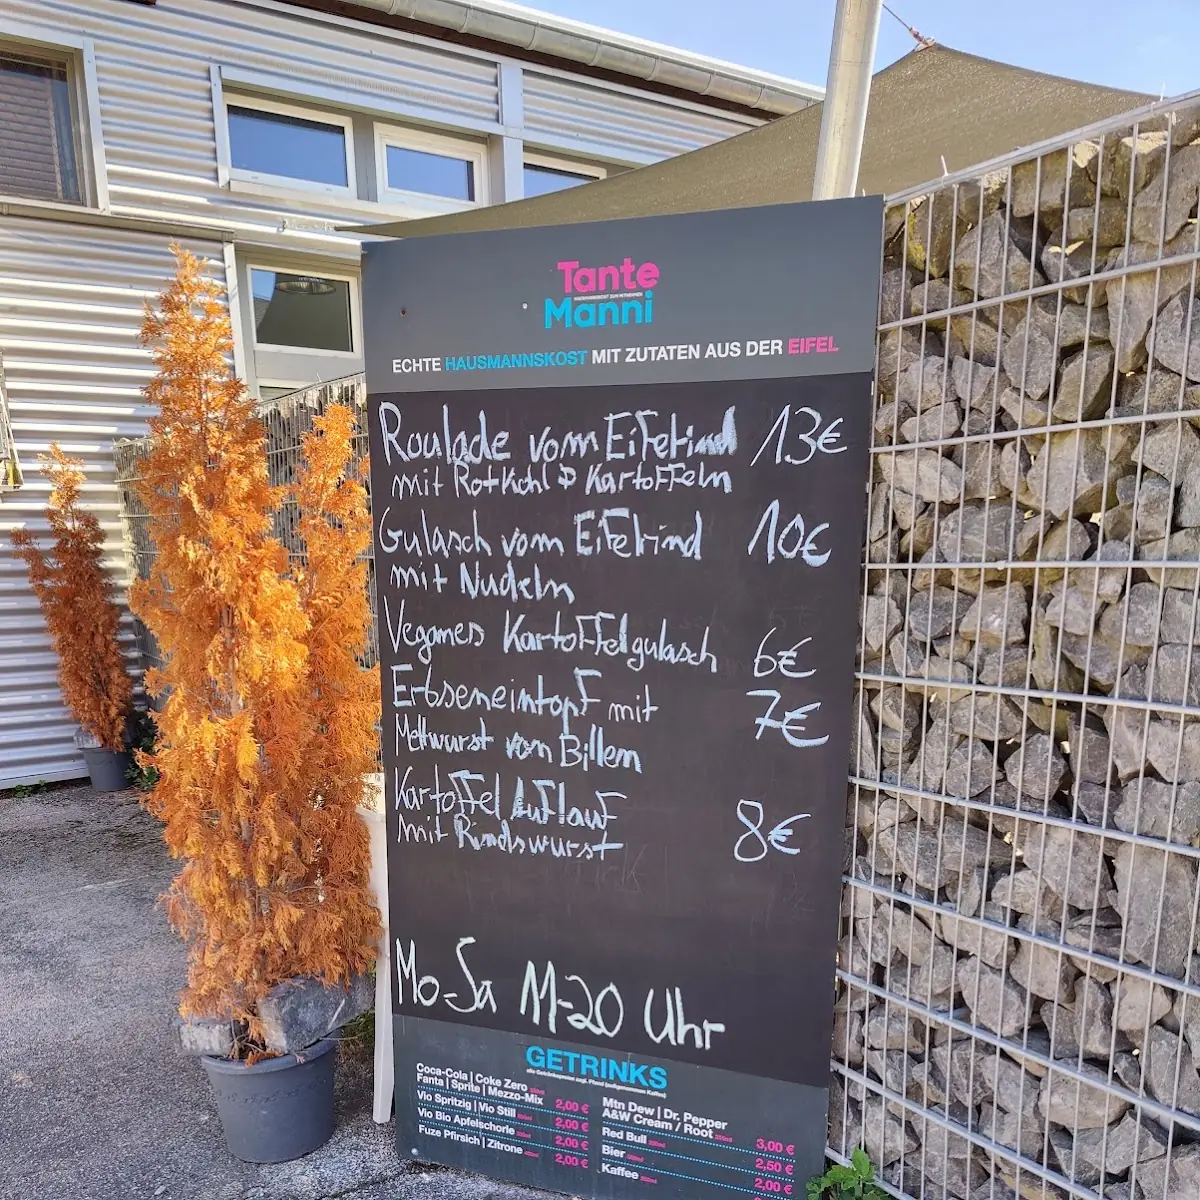 Tante
Manni
ECHTE HAUSMANNSKOST MIT ZUTATEN AUS DER EIFEL
Roulade vom Eifelrind 13€
mit Rotkohl & Kartoffeln
Gulasch vom Eifelrind 10€
mit Nudeln
Veganes Kartoffelgulasch 6€
Erbseneintopf mit 7€
Mettwurst von Billen
Kartoffel Auflauf
mit Rindswurst 8€
Mo-Sa 11-20 Uhr
GETRINKS
Coca-Cola | Coke Zero
Fanta | Sprite | Mezzo-Mix 2,00 €
Vio Spritzig | Vio Still 2,00 €
Vio Bio Apfelschorle 2,00 €
Fuze Pfirsich | Zitrone 2,00 €
Mtn Dew | Dr. Pepper
A&W Cream / Root 3,00 €
Red Bull 2,50 €
Bier 2,00 €
Kaffee